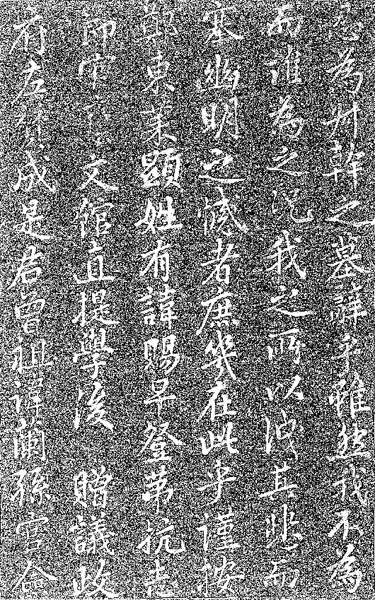 忍為幹之墓辭乎雖然我不為
而誰為之況我之所以洩其悲而
塞幽明之憾者庶幾在此乎謹按
鄭東萊顯姓有諱賜早登第抗志
文館直提學後 贈議政
府左贊成是君曾祖諱蘭孫官僉